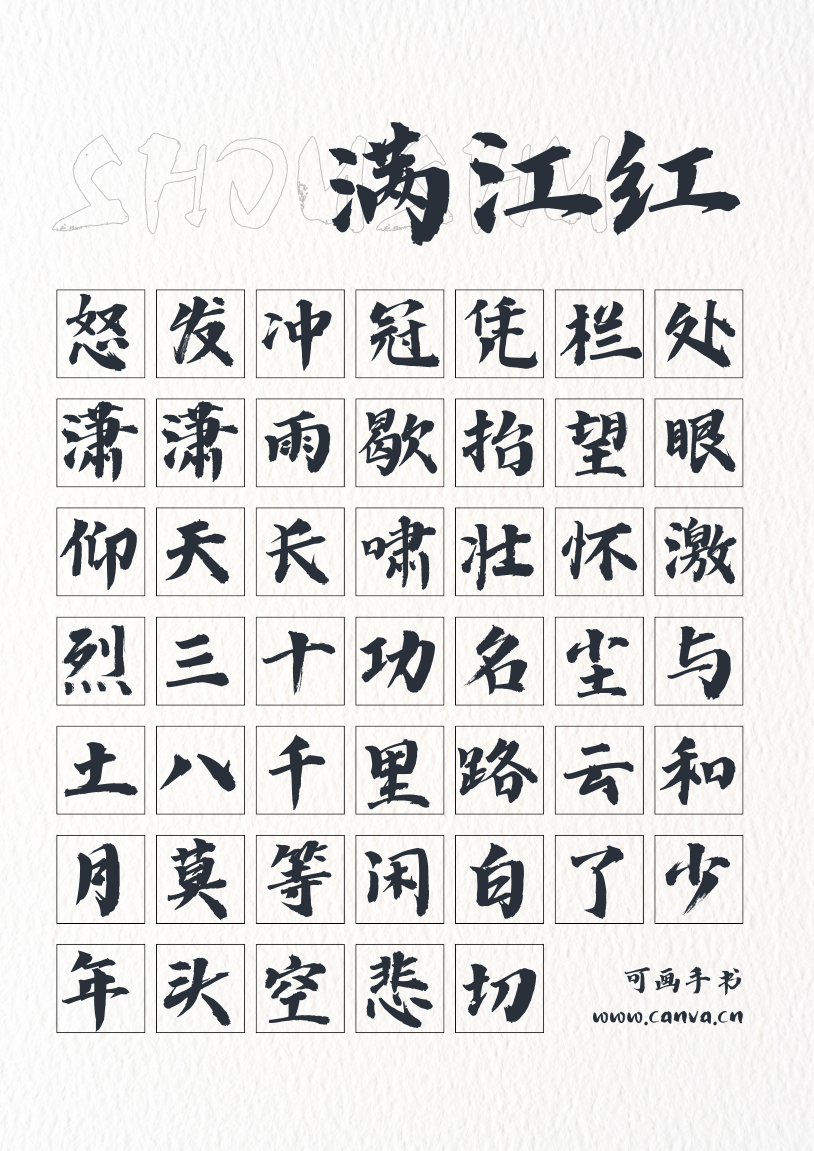 SHOUSHU
满江红
怒发冲冠凭栏处
潇潇雨歇抬望眼
仰天长啸壮怀激
烈三十功名尘与
土八千里路云和
月莫等闲白了少
年头空悲切
可画手书
www.canva.cn